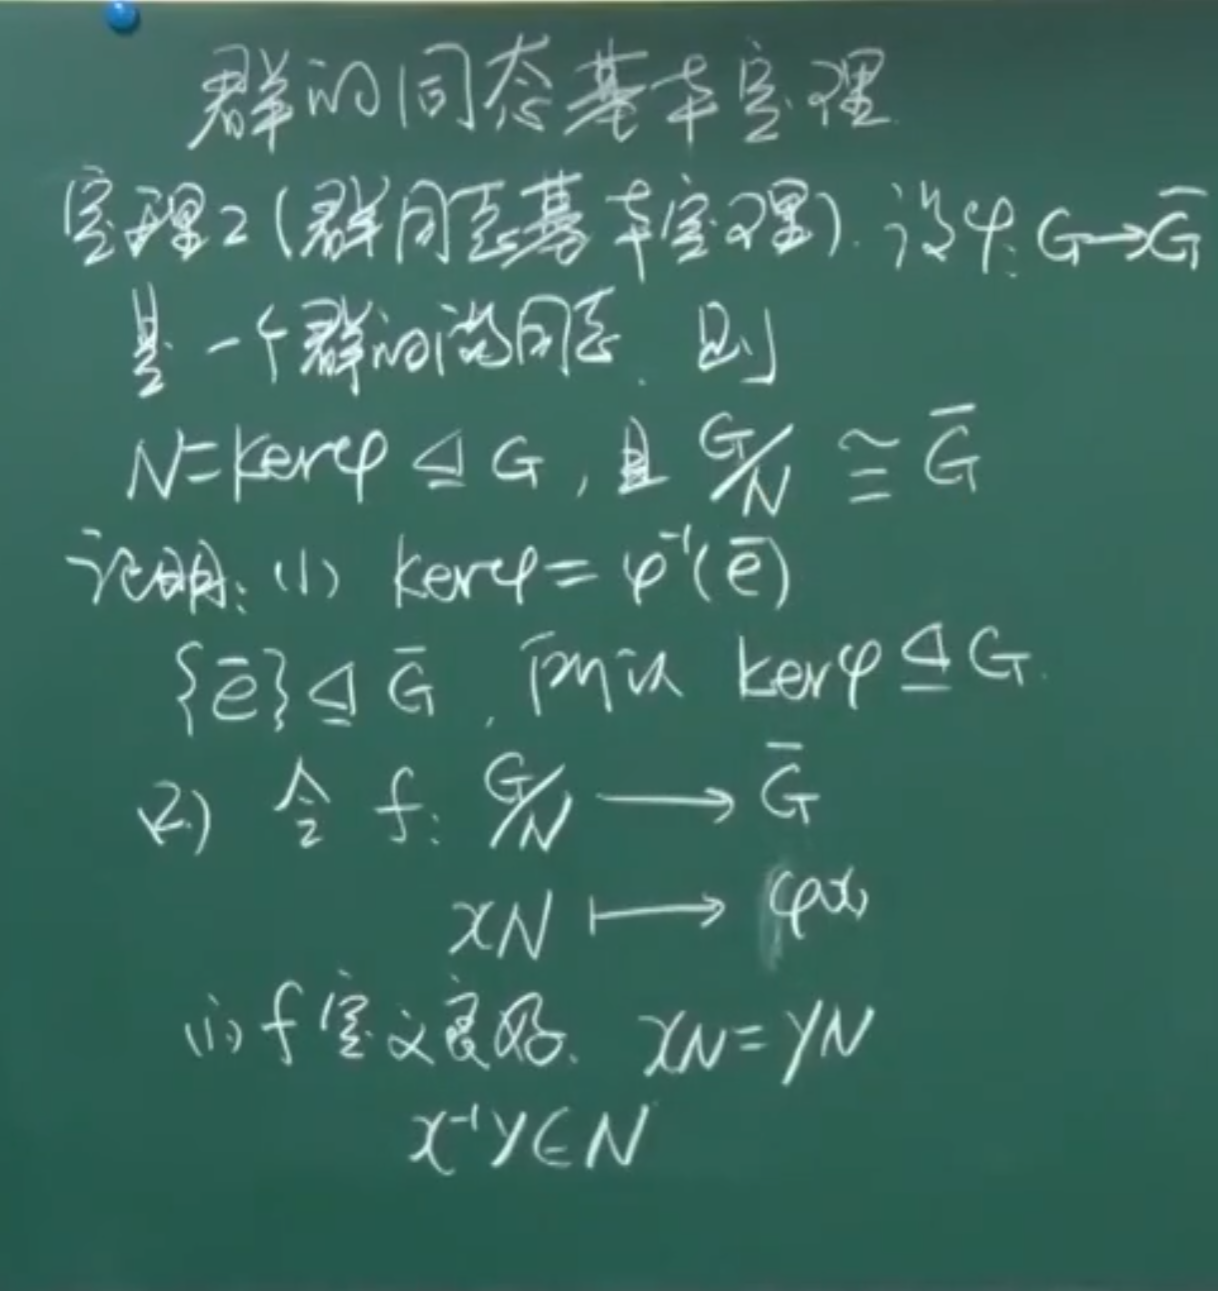 群的同态基本定理
定理2(群同态基本定理). 设φ: G→G̅
是一个群的满同态. 则
N=kerφ ⊴ G, 且 G/N ≅ G̅
证明: (1) kerφ = φ⁻¹(e̅)
{e̅} ⊴ G̅, 所以 kerφ ⊴ G.
(2) 令 f: G/N ⟶ G̅
xN ⟼ φ(x)
(i) f 定义良好. xN = yN
x⁻¹y ∈ N